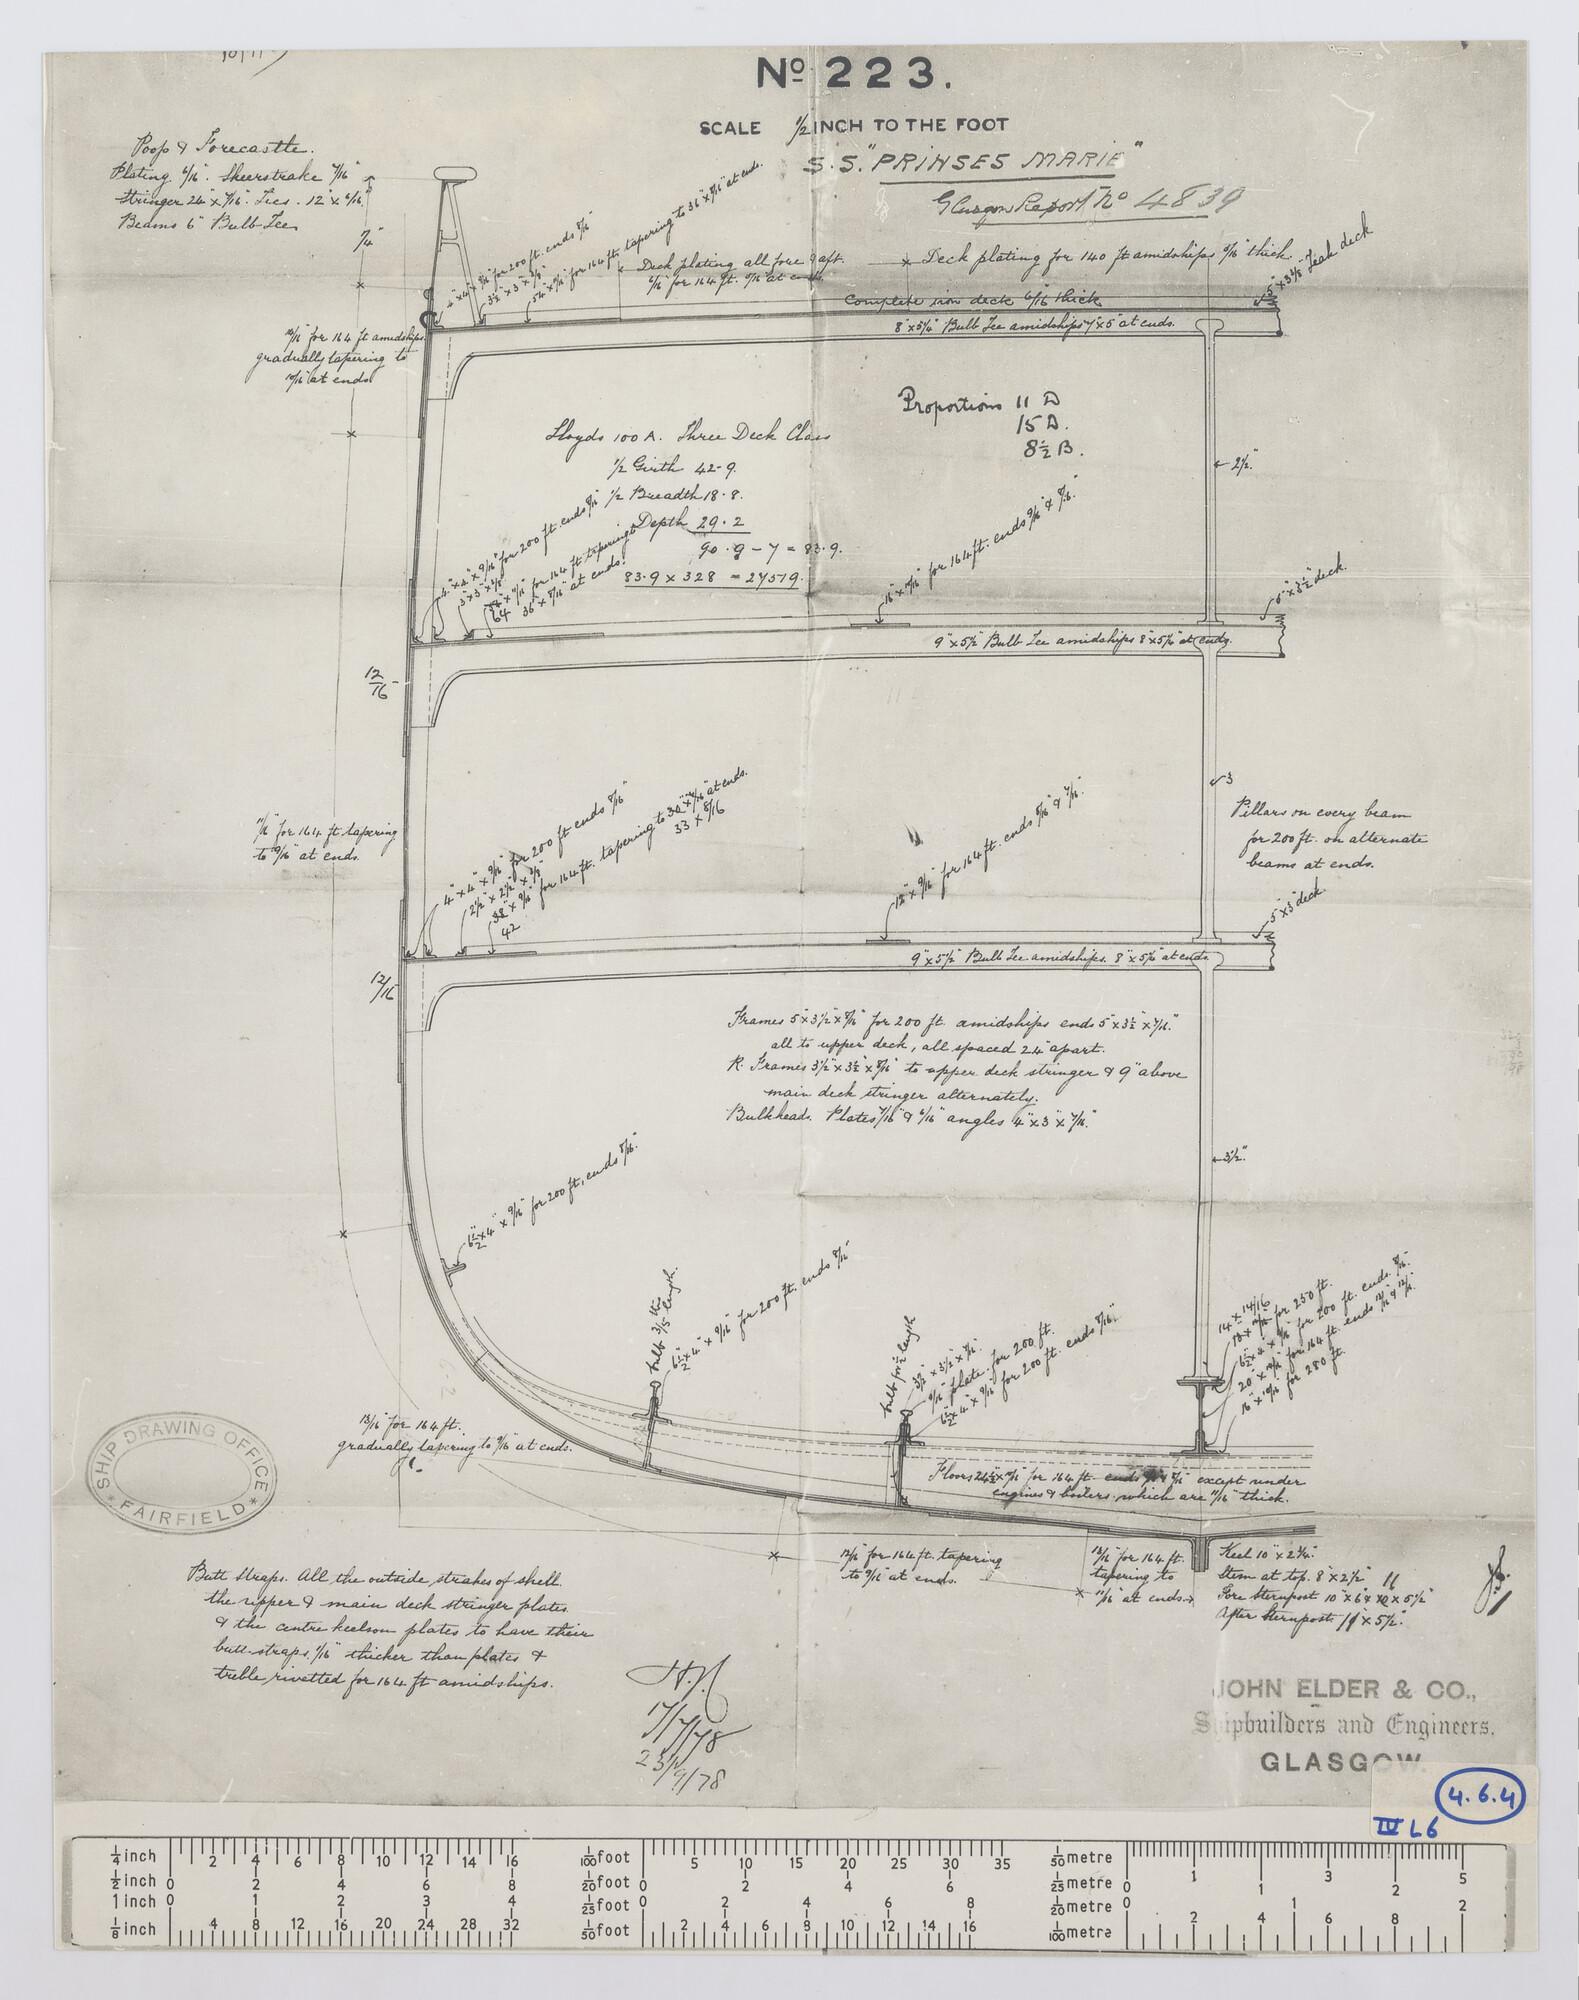 No 223.
SCALE 1/2 INCH TO THE FOOT
S.S. "PRINSES MARIE"
Glasgow Report No 4839
Poop & Forecastle.
Plating 6/16". Sheerstrake 7/16"
Stringer 24" x 7/16". Ties. 12" x 6/16"
Beams 6" Bulb Tee
4" x 4" x 9/16" for 200 ft ends 8/16"
Deck plating all fore & aft.
6/16" for 164 ft.
Deck plating for 140 ft amidships 6/16" thick.
5" x 3 1/2" Teak deck
Complete iron deck 6/16" thick
8" x 5 1/4" Bulb Tee amidships 7" x 5" at ends.
for 164 ft amidships
gradually tapering to
10/16" at ends
Proportions 11 D
15 D.
8 1/2 B.
Lloyds 100 A. Three Deck Class
1/2 Girth 42-9.
1/2 Breadth 18.8.
Depth 29.2
90.9 - 7 = 83.9.
83.9 x 328 = 27519.
2 1/2"
4" x 4" x 9/16" for 200 ft. ends 8/16"
for 164 ft tapering to
64
36" x 8/16" at ends.
for 164 ft. ends 9/16" & 8/16"
5" x 3 1/2" deck.
9" x 5 1/2" Bulb Tee amidships 8" x 5 1/4" at ends.
12/16
3
11/16" for 164 ft tapering
to 9/16" at ends.
4" x 4" x 9/16" for 200 ft ends 8/16"
2 1/2" x 2 1/2" x
for 164 ft. tapering to at ends.
33 x 8/16
42
12" x 9/16" for 164 ft. ends 8/16" & 7/16".
Pillars on every beam
for 200 ft. on alternate
beams at ends.
5" x 3" deck
9" x 5 1/2" Bulb Tee amidships. 8" x 5 1/4" at ends.
12/16
Frames 5" x 3 1/2" x 8/16" for 200 ft. amidships ends 5" x 3 1/2" x 7/16."
all to upper deck, all spaced 24" apart.
R. Frames 3 1/2" x 3 1/2" x 8/16" to upper deck stringer & 9" above
main deck stringer alternately.
Bulkheads. Plates 7/16" & 6/16" angles 4" x 3" x 7/16."
3 1/2"
6 1/2" x 4" x 9/16" for 200 ft. ends 8/16".
bulb 3/5ths length.
6 1/2" x 4" x 9/16" for 200 ft. ends 8/16"
bulb for 1/2 length
plate for 200 ft.
6 1/2" x 4" x 9/16" for 200 ft. ends 8/16".
14 x 14/16
for 250 ft.
6 1/2" x 4" x 9/16" for 200 ft. ends 8/16".
for 164 ft. ends
for 280 ft.
13/16" for 164 ft.
gradually tapering to 9/16" at ends.
Floors for 164 ft. ends except under
engines & boilers which are 11/16" thick.
SHIP DRAWING OFFICE
* FAIRFIELD *
12/16" for 164 ft. tapering
to 9/16" at ends.
13/16" for 164 ft.
tapering to
11/16" at ends
Keel 10" x 2 3/4."
Stem at top. 8" x 2 1/2"
Fore Sternpost 10" x
After Sternpost x 5 1/2".
Butt Straps. All the outside strakes of shell.
the upper & main deck stringer plates
& the centre keelson plates to have their
butt-straps 1/16" thicker than plates &
treble rivetted for 164 ft amidships.
17/7/78
23/9/78
JOHN ELDER & CO.,
Shipbuilders and Engineers.
GLASGOW.
4.6.4
IV L6
1/4 inch 2 4 6 8 10 12 14 16
1/2 inch 0 2 4 6 8
1 inch 0 1 2 3 4
1/8 inch 4 8 12 16 20 24 28 32
1/100 foot 5 10 15 20 25 30 35
1/20 foot 0 2 4 6
1/25 foot 0 2 4 6 8
1/50 foot 2 4 6 8 10 12 14 16
1/50 metre 1 3 5
1/25 metre 0 1 2
1/20 metre 0 1 2
1/100 metre 2 4 6 8